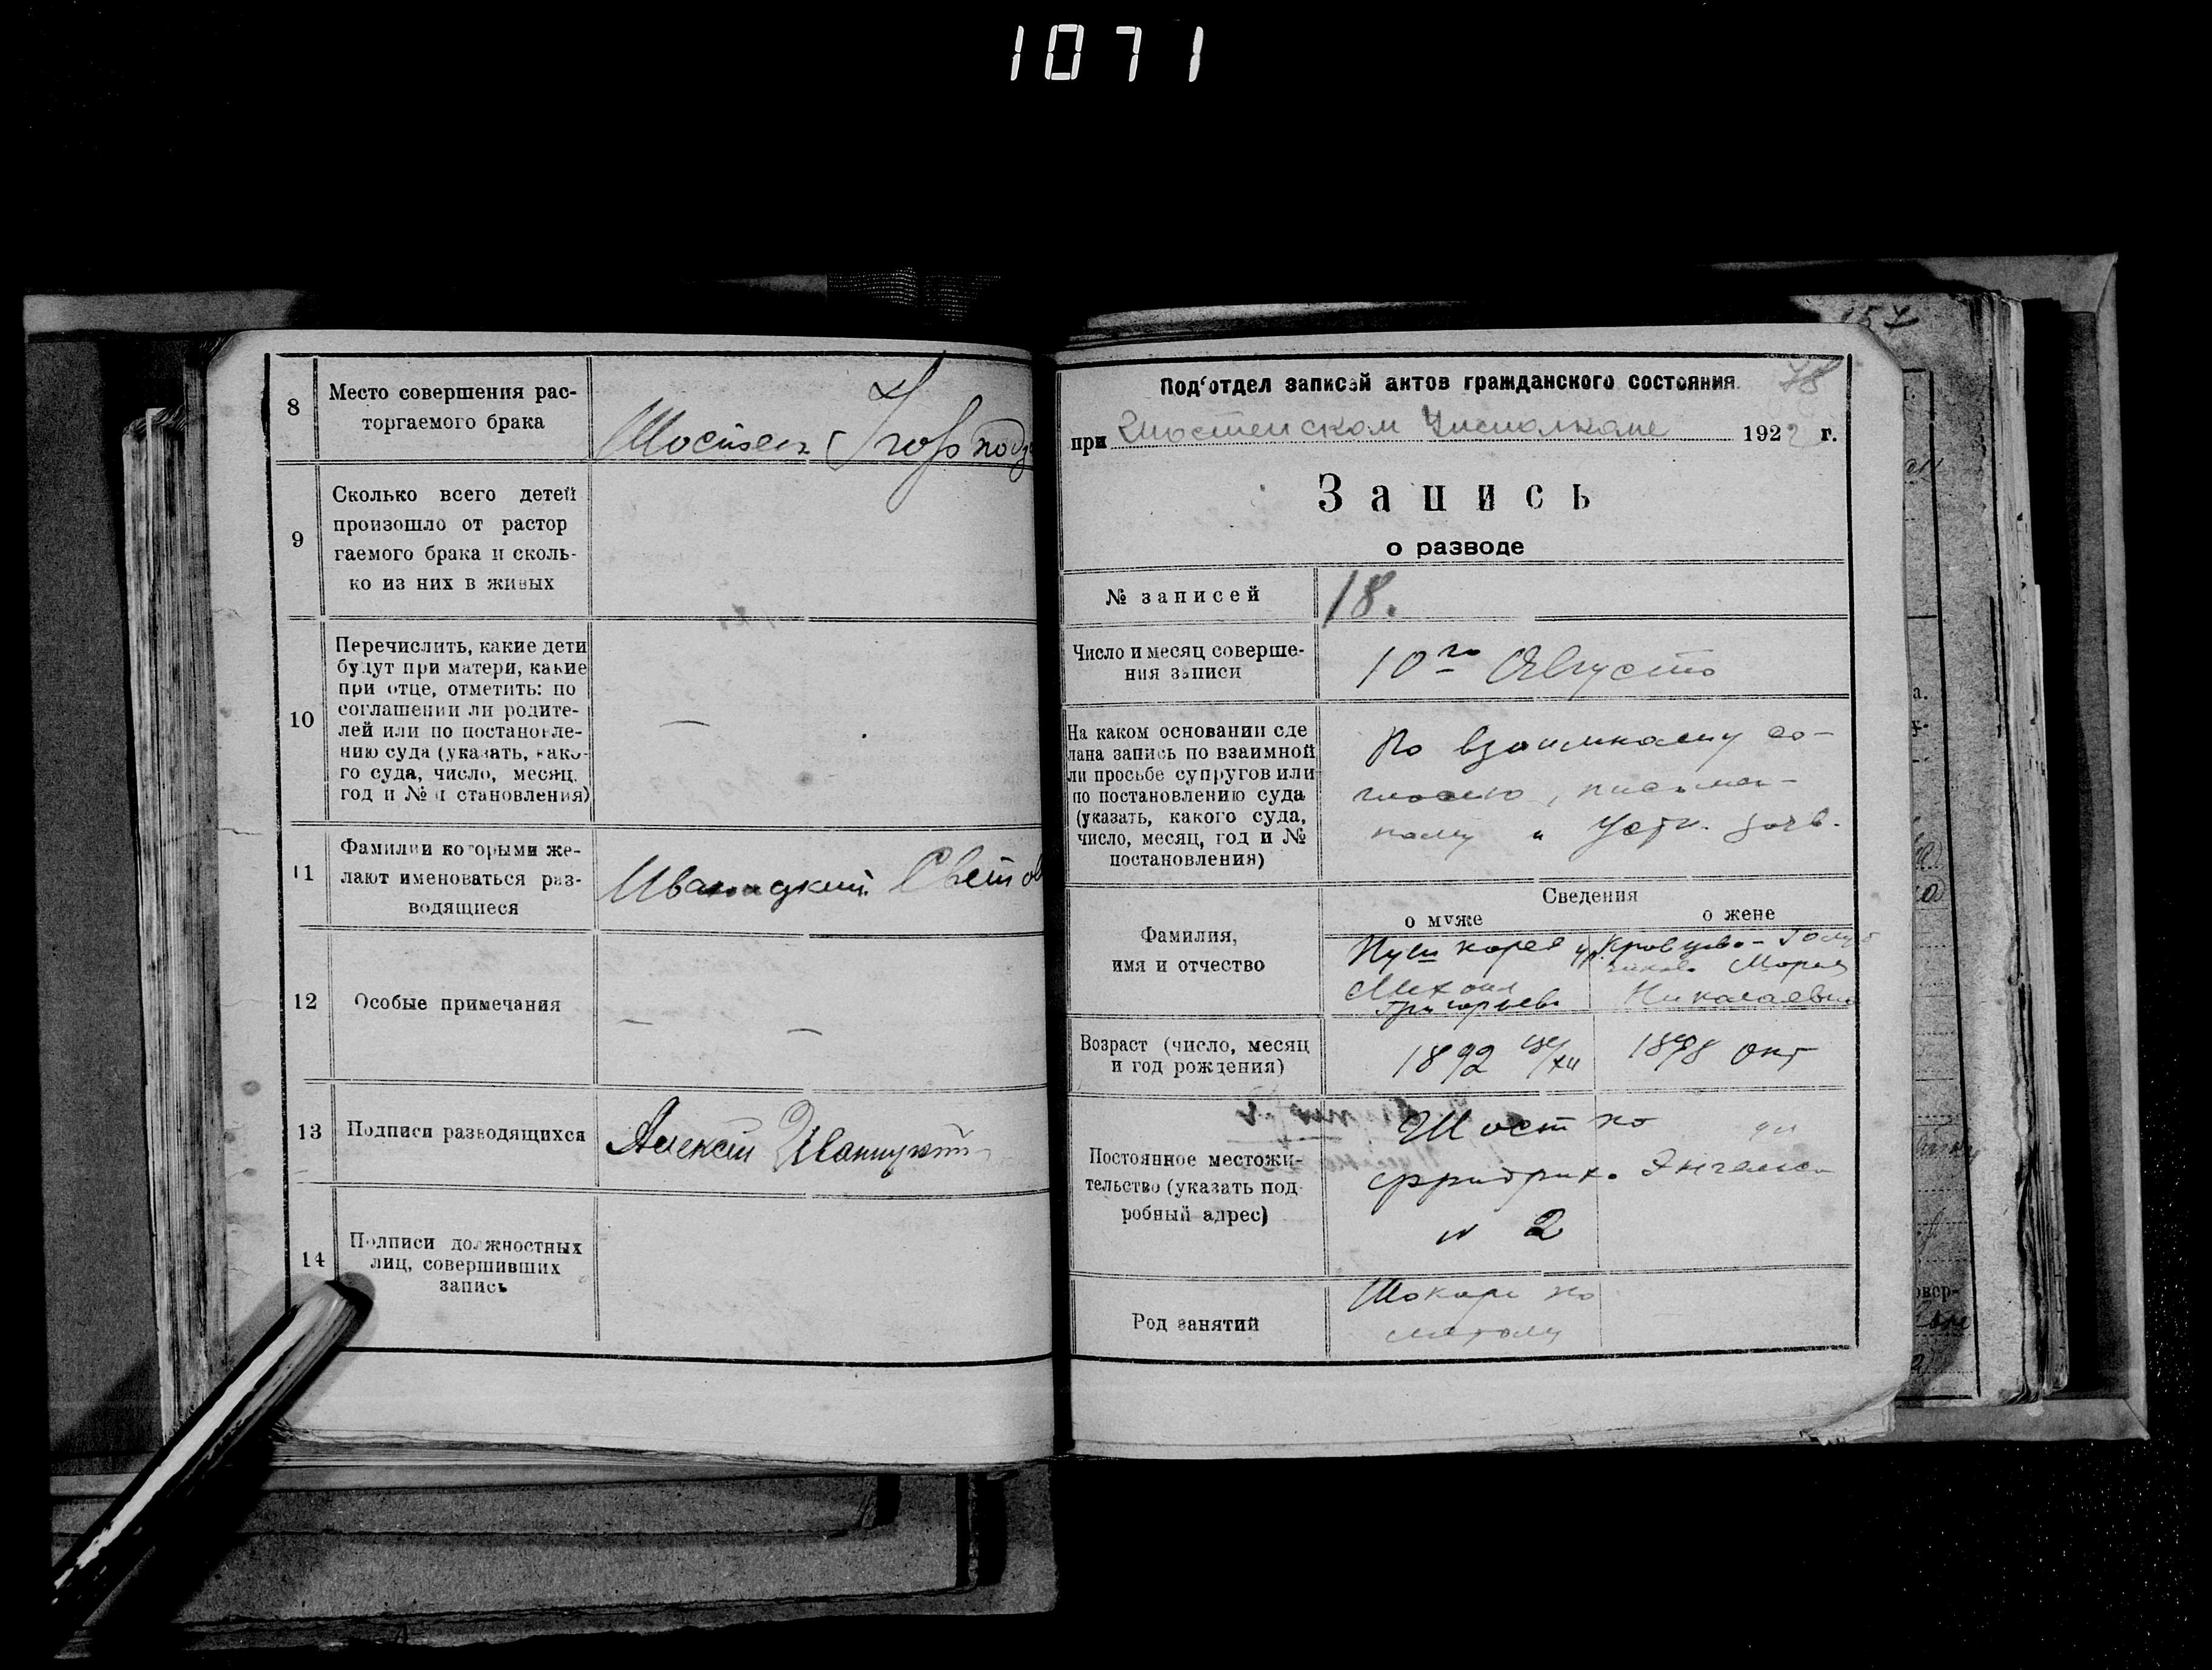 1071
8
Место совершения рас-
торгаемого брака
9
Сколько всего детей
произошло от растор
гаемого брака и сколь-
ко из них в живых
10
Перечислить, какие дети
будут при матери, какие
при отце, отметить: по
соглашении ли родите-
лей или по постановле-
нию суда (указать, како-
го суда, число, месяц,
год и № п становления)
—
11
Фамилии которыми же-
лают именоваться раз-
водящиеся
Иваницкий
12
Особые примечания
— —
13
Подписи разводящихся
Алексей Иваницкий
14
Подписи должностных
лиц, совершивших
запись
157
78
Под'отдел записей актов гражданского состояния
при Шостенском Исполкоме 1922 г.
Запись
о разводе
№ записей
18.
Число и месяц соверше-
ния записи
10го Августа
На каком основании сде
лана запись по взаимной
ли просьбе супругов или
по постановлению суда
(указать, какого суда,
число, месяц, год и №
постановления)
По взаимному со-
гласию, письмен-
ному и
Сведения
о муже
о жене
Фамилия,
имя и отчество
Михаил
Григорьев
Мария
Николаевна
Возраст (число, месяц
и год рождения)
1892
1898 окт
Постоянное местожи-
тельство (указать под
робный адрес)
Шостка
Фридриха Энгельса
№ 2
Род занятий
Токарь по
металу